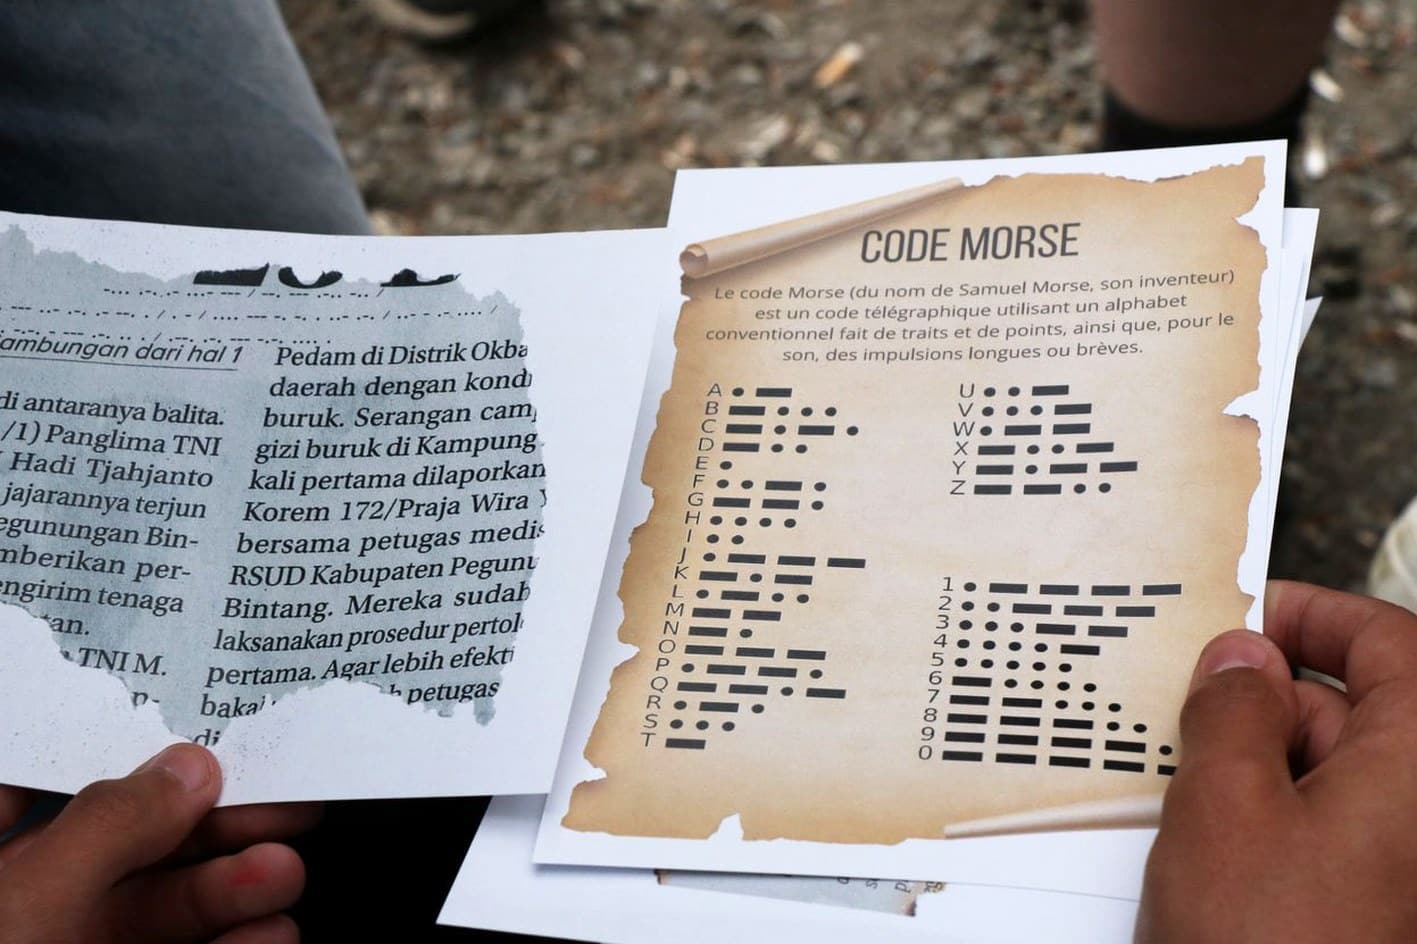 ambungan dari hal 1
di antaranya balita.
/1) Panglima TNI
Hadi Tjahjanto
jajarannya terjun
egunungan Bin-
mberikan per-
engirim tenaga
tan.
TNI M.
n-
di
Pedam di Distrik Okba
daerah dengan kondi
buruk. Serangan cam
gizi buruk di Kampung
kali pertama dilaporkan
Korem 172/Praja Wira Y
bersama petugas medis
RSUD Kabupaten Pegunu
Bintang. Mereka sudah
laksanakan prosedur pertol
pertama. Agar lebih efekti
bakal h petugas
CODE MORSE
Le code Morse (du nom de Samuel Morse, son inventeur)
est un code télégraphique utilisant un alphabet
conventionnel fait de traits et de points, ainsi que, pour le
son, des impulsions longues ou brèves.
A
B
C
D
E
F
G
H
I
J
K
L
M
N
O
P
Q
R
S
T
U
V
W
X
Y
Z
1
2
3
4
5
6
7
8
9
0